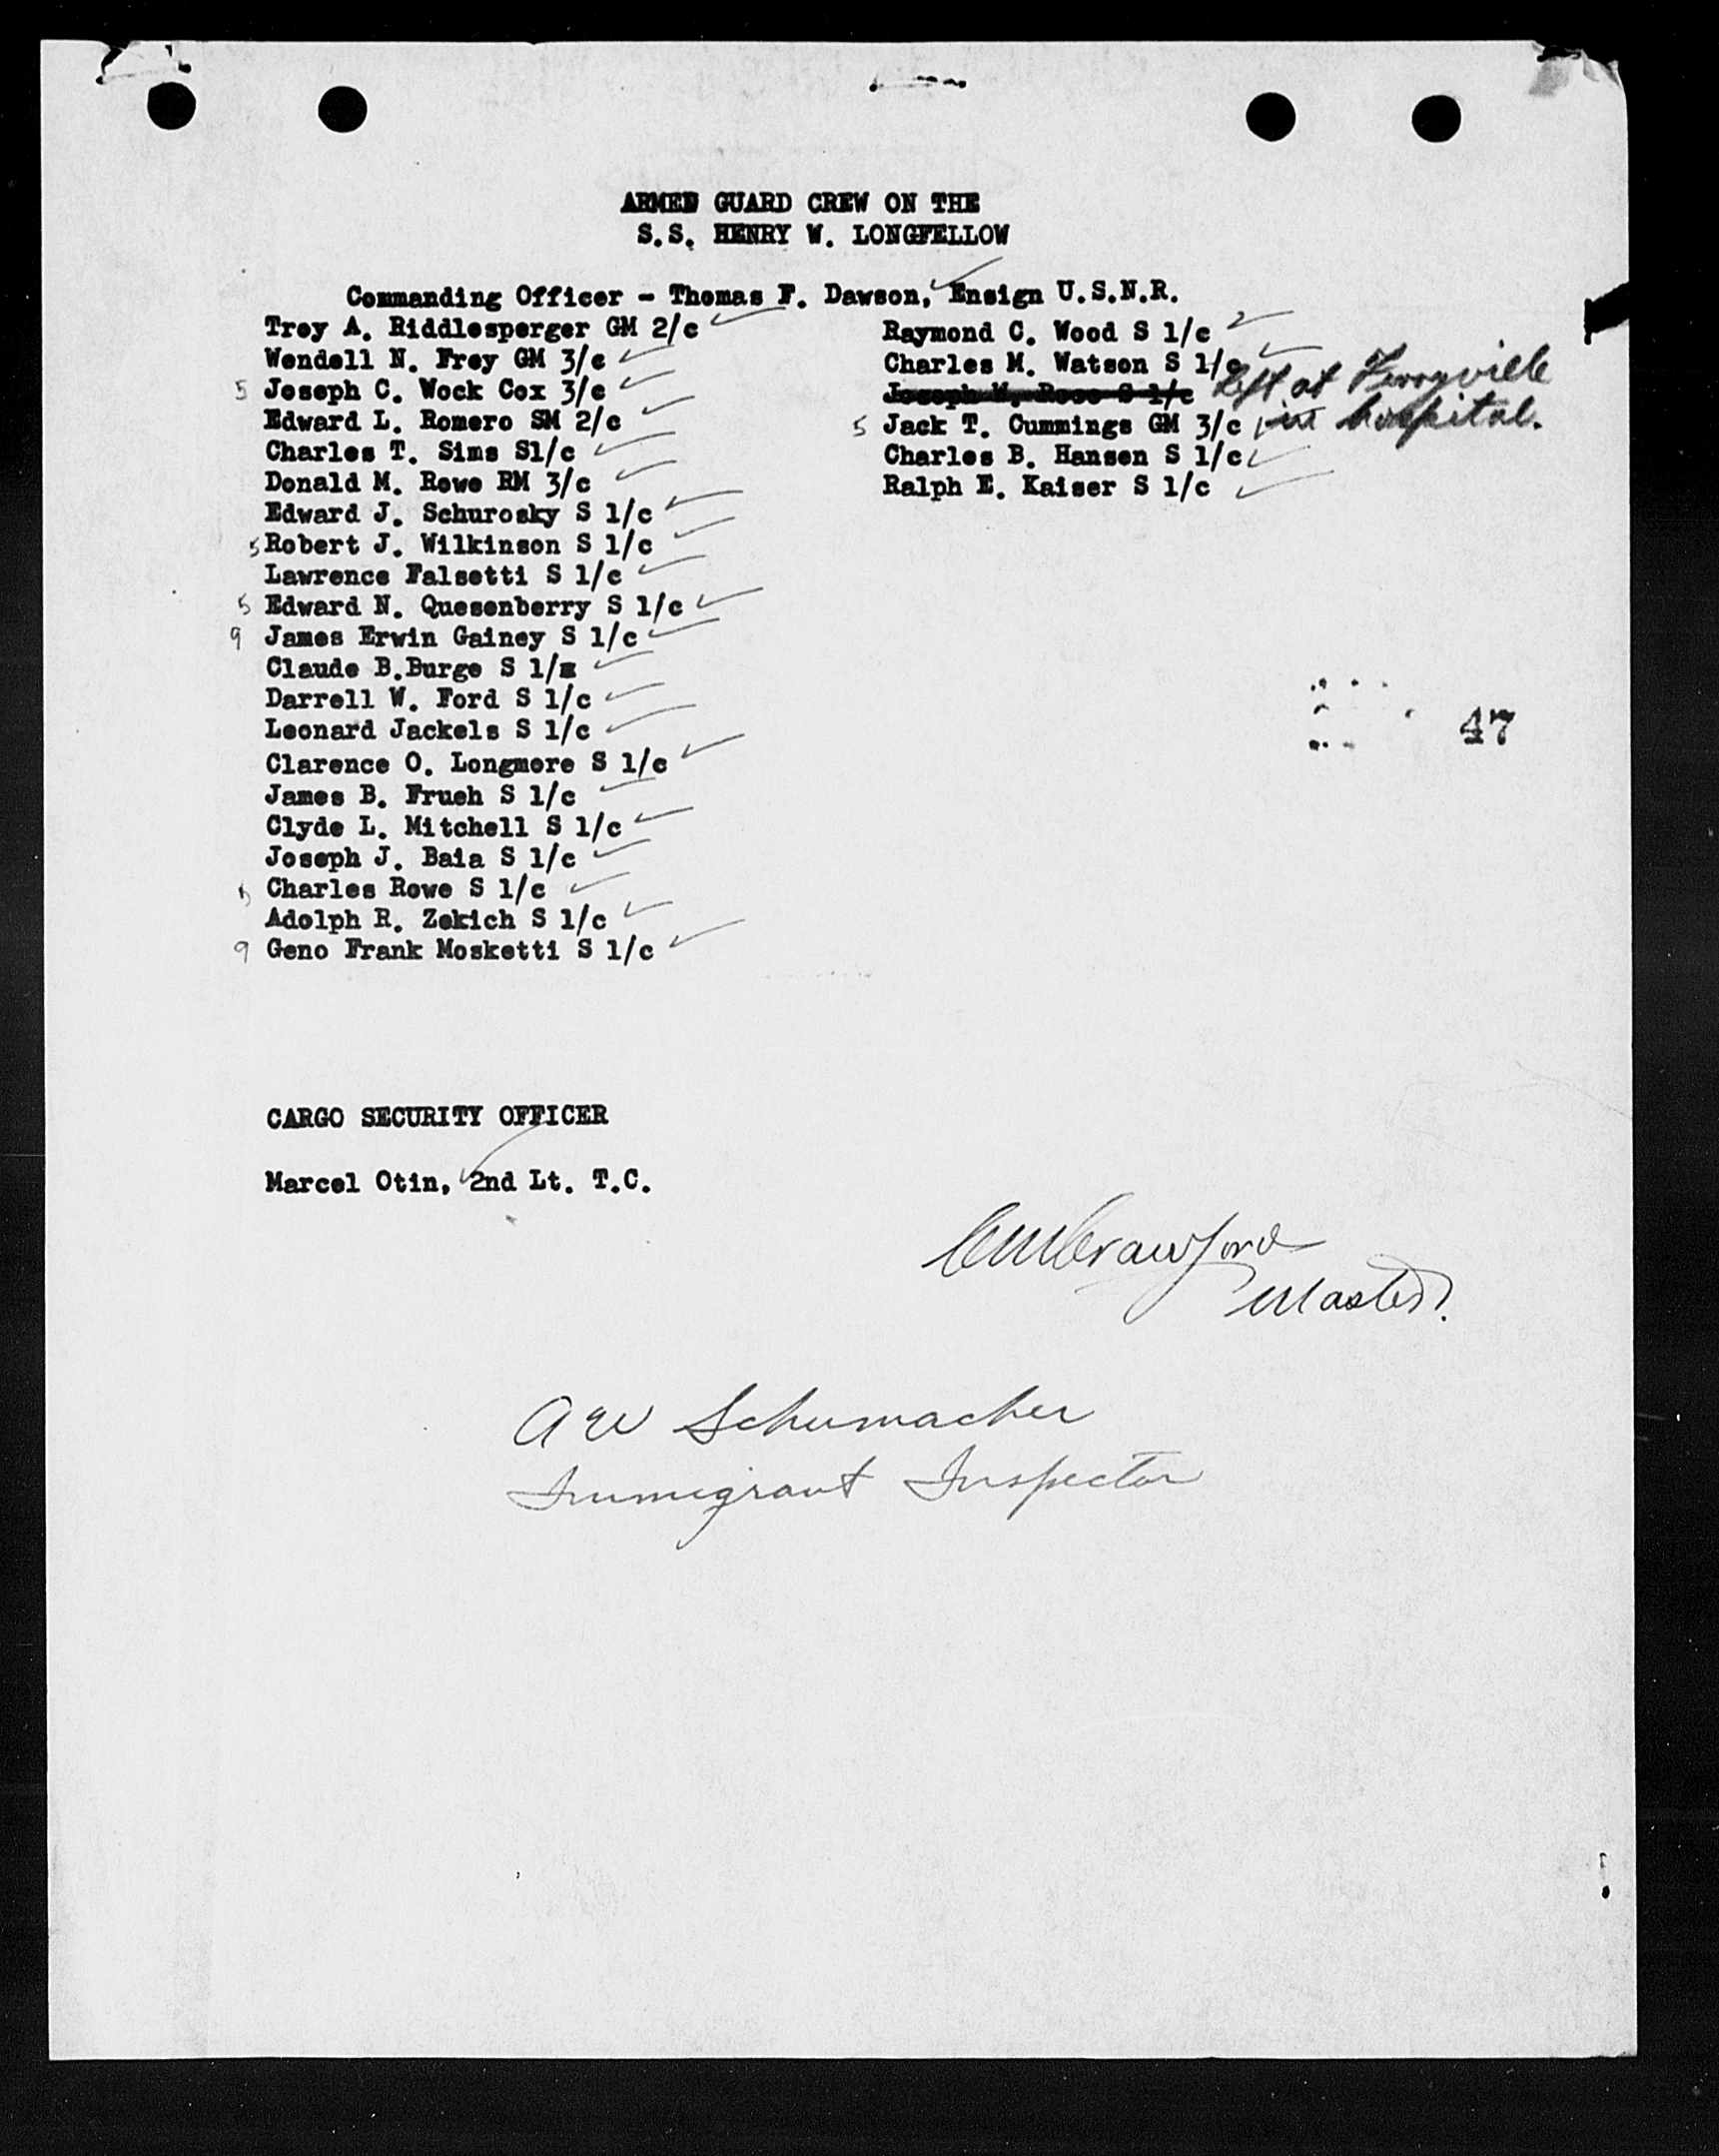 ARMED GUARD CREW ON THE
S.S. HENRY W. LONGFELLOW
Commanding Officer - Thomas F. Dawson, Ensign U.S.N.R.
Troy A. Riddlesperger GM 2/c
Wendell N. Frey GM 3/c
5 Joseph C. Wock Cox 3/c
Edward L. Romero SM 2/c
Charles T. Sims S1/c
Donald M. Rowe RM 3/c
Edward J. Schurosky S 1/c
5 Robert J. Wilkinson S 1/c
Lawrence Falsetti S 1/c
5 Edward N. Quesenberry S 1/c
9 James Erwin Gainey S 1/c
Claude B.Burge S 1/
Darrell W. Ford S 1/c
Leonard Jackels S 1/c
Clarence O. Longmore S 1/c
James B. Frueh S 1/c
Clyde L. Mitchell S 1/c
Joseph J. Baia S 1/c
5 Charles Rowe S 1/c
Adolph R. Zekich S 1/c
9 Geno Frank Mosketti S 1/c
Raymond C. Wood S 1/c
Charles M. Watson S 1/c
Joseph S 1/c Left at Ferryville
5 Jack T. Cummings GM 3/c in hospital.
Charles B. Hansen S 1/c
Ralph E. Kaiser S 1/c
47
CARGO SECURITY OFFICER
Marcel Otin, 2nd Lt. T.C.
Crawford
Master.
A W Schumacher
Immigrant Inspector